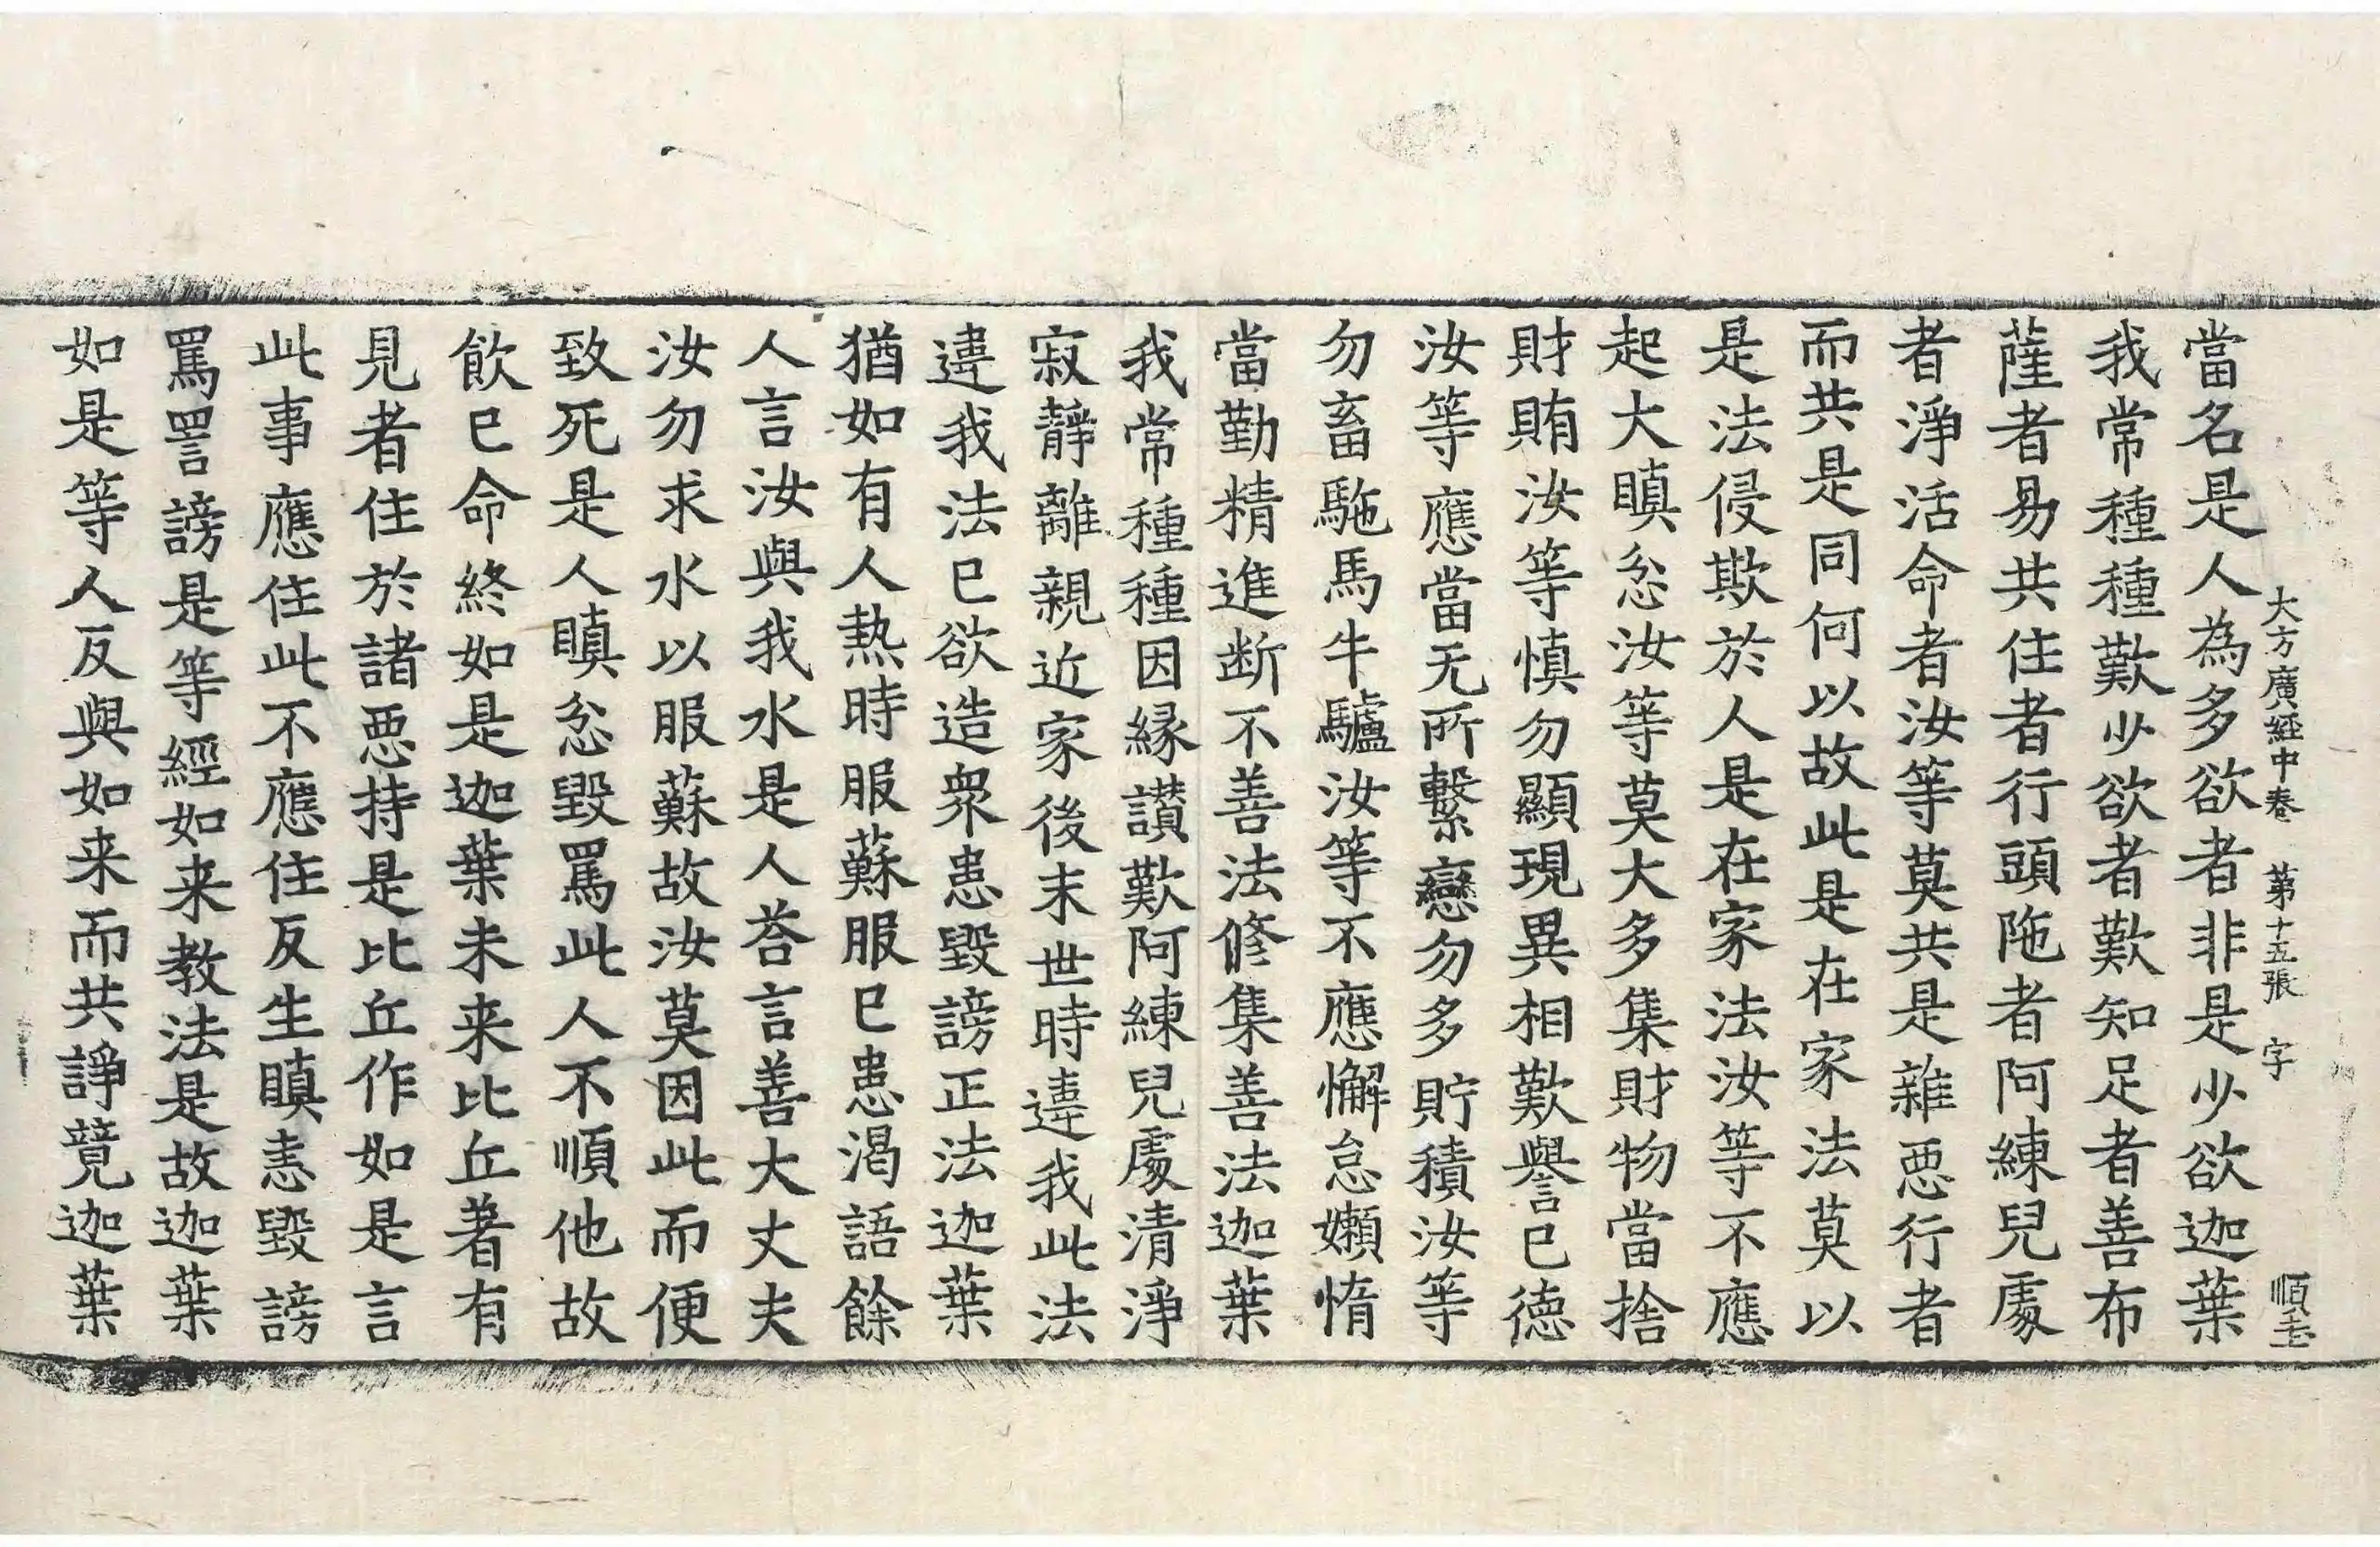 大方廣經中卷　第十五張　字　順圭
當名是人為多欲者非是少欲迦葉
我常種種歎少欲者歎知足者善布
薩者易共住者行頭陁者阿練兒處
者淨活命者汝等莫共是雜惡行者
而共是同何以故此是在家法莫以
是法侵欺於人是在家法汝等不應
起大瞋忿汝等莫大多集財物當捨
財賄汝等慎勿顯現異相歎譽已德
汝等應當无所繫戀勿多貯積汝等
勿畜駞馬牛驢汝等不應懈怠嬾惰
當勤精進断不善法修集善法迦葉
我常種種因縁讃歎阿練兒處清淨
寂靜離親近家後末世時違我此法
違我法已欲造衆患毀謗正法迦葉
猶如有人熱時服蘇服已患渴語餘
人言汝與我水是人荅言善大丈夫
汝勿求水以服蘇故汝莫因此而便
致死是人瞋忿毀罵此人不順他故
飲已命終如是迦葉未来比丘著有
見者住於諸惡持是比丘作如是言
此事應住此不應住反生瞋恚毀謗
罵詈謗是等經如来教法是故迦葉
如是等人反與如来而共諍競迦葉